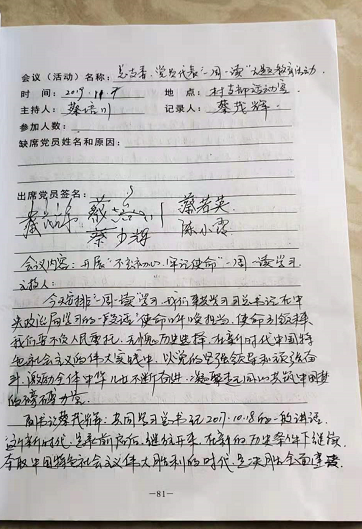 会议(活动)名称:党员代表"一周一读"主题教育活动
时 间:2019.11.9 地 点:村支部活动室
主持人:蔡培川 记录人:蔡茂辉
参加人数:
缺席党员姓名和原因:
出席党员签名:
蔡培川 蔡若英
蔡少辉 陈小霞
会议内容:开展"不忘初心、牢记使命"一周一读学习
主持人:
今天安排"一周一读"学习,我们要学习习总书记在中
央政治局学习的一段话:使命呼唤担当,使命引领未来
我们要不负人民重托、无愧历史选择,在新时代中国特
色社会主义的伟大实践中,以党的坚强领导和顽强奋
斗,激励全体中华儿女不断奋进,凝聚起同心共筑中国梦
的磅礴力量。
副书记蔡茂辉:共同学习总书记2017.10.18的一段讲话
这个新时代,是承前启后、继往开来、在新的历史条件下继续
夺取中国特色社会主义伟大胜利的时代,是决胜全面建
—81—